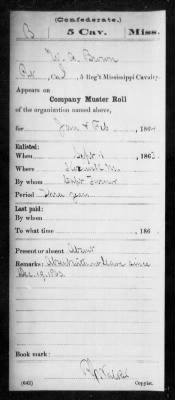 (Confederate.)
B 5 Cav. Miss.
W. A. Brown
Pvt, Co. , 5 Reg't Mississippi Cavalry.
Appears on
Company Muster Roll
of the organization named above,
for Jan & Feb , 1864
Enlisted:
When Sept 1 , 1863
Where
By whom Capt Turner
Period Three years
Last paid:
By whom
To what time , 186
Present or absent Absent
Remarks: Absent without leave since
Dec. 19, 1863
Book mark:
(642) Copyist.